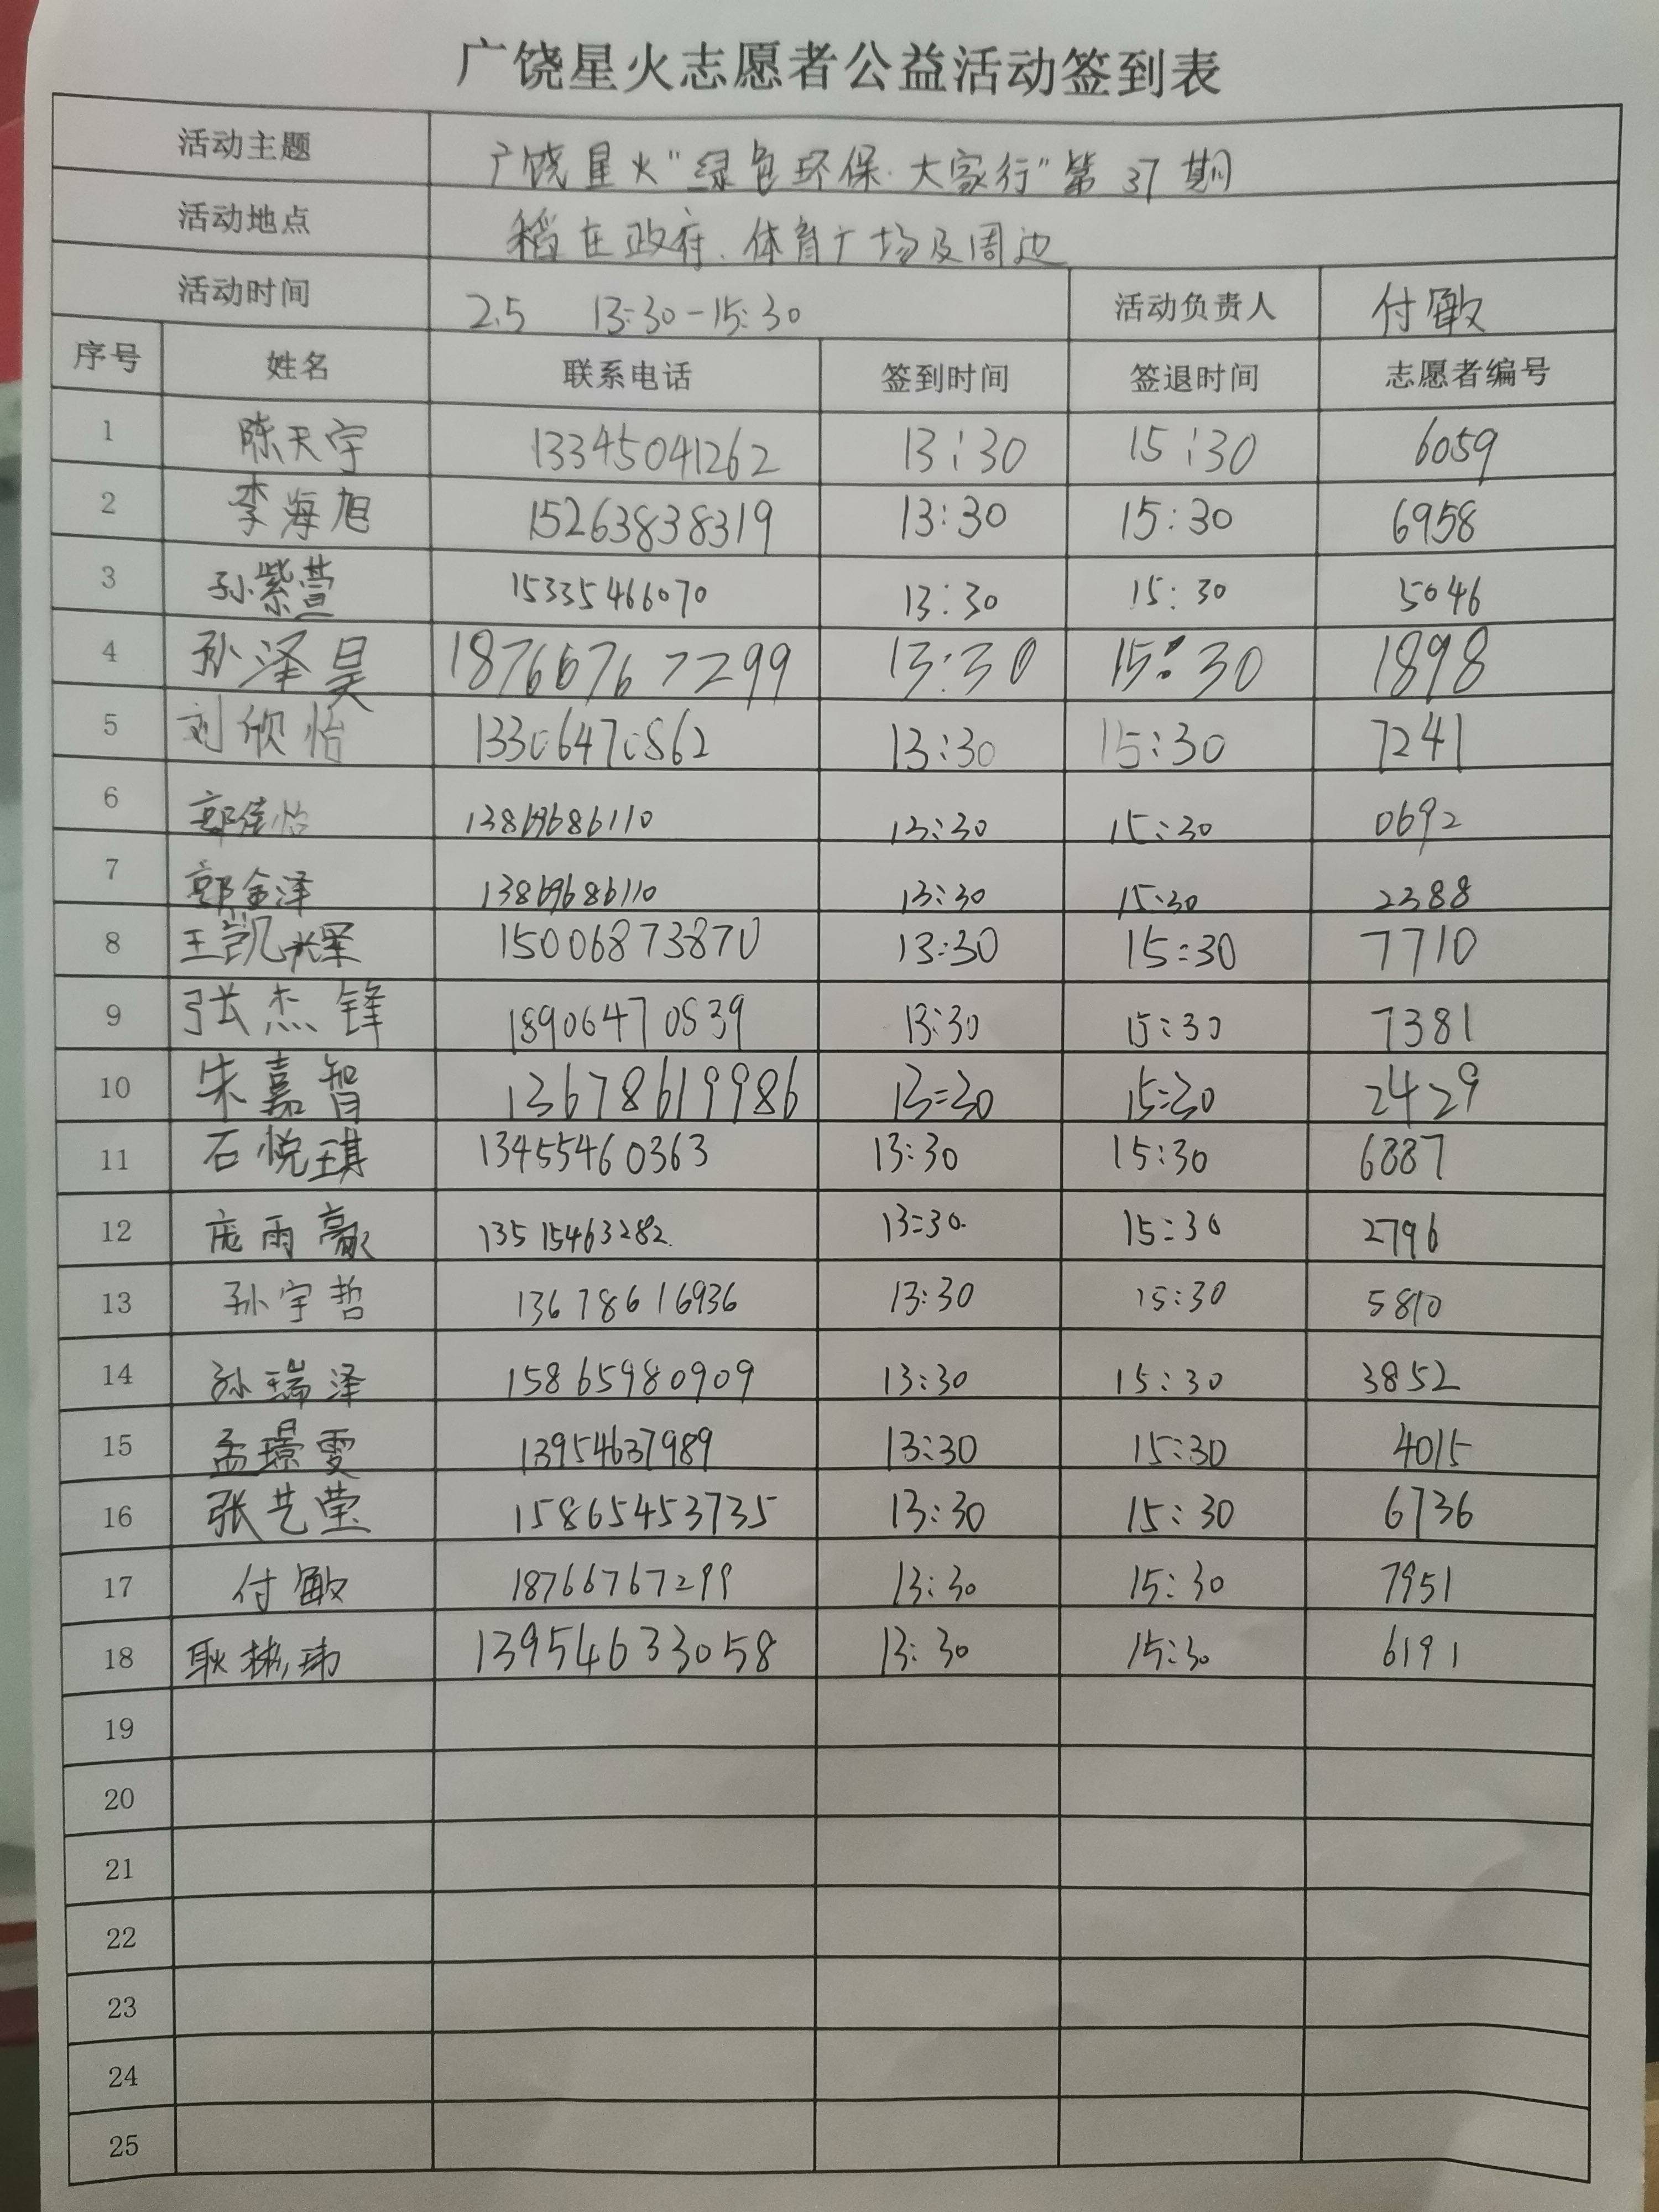 广饶星火志愿者公益活动签到表
活动主题 广饶星火"绿色环保·大家行"第37期
活动地点 稻庄政府、体育广场及周边
活动时间 2.5 13:30-15:30 活动负责人 付敏
序号 姓名 联系电话 签到时间 签退时间 志愿者编号
1 陈天宇 13345041262 13:30 15:30 6059
2 李海旭 15263838319 13:30 15:30 6958
3 孙紫萱 15335466070 13:30 15:30 5046
4 孙泽昊 18766767299 13:30 15:30 1898
5 刘欣怡 13306470562 13:30 15:30 7241
6 郭佳怡 13869686110 13:30 15:30 0692
7 郭金泽 13869686110 13:30 15:30 2388
8 王凯辉 15006873870 13:30 15:30 7710
9 张杰锋 18906470539 13:30 15:30 7381
10 朱嘉智 13678619986 13:30 15:30 2429
11 石悦琪 13455460363 13:30 15:30 6887
12 庞雨歆 13515463282 13:30 15:30 2796
13 孙宇哲 13678616936 13:30 15:30 5810
14 孙瑞泽 15865980909 13:30 15:30 3852
15 孟璟雯 13954637989 13:30 15:30 4015
16 张艺莹 15865453735 13:30 15:30 6736
17 付敏 18766767299 13:30 15:30 7951
18 耿彬玮 13954633058 13:30 15:30 6191
19
20
21
22
23
24
25